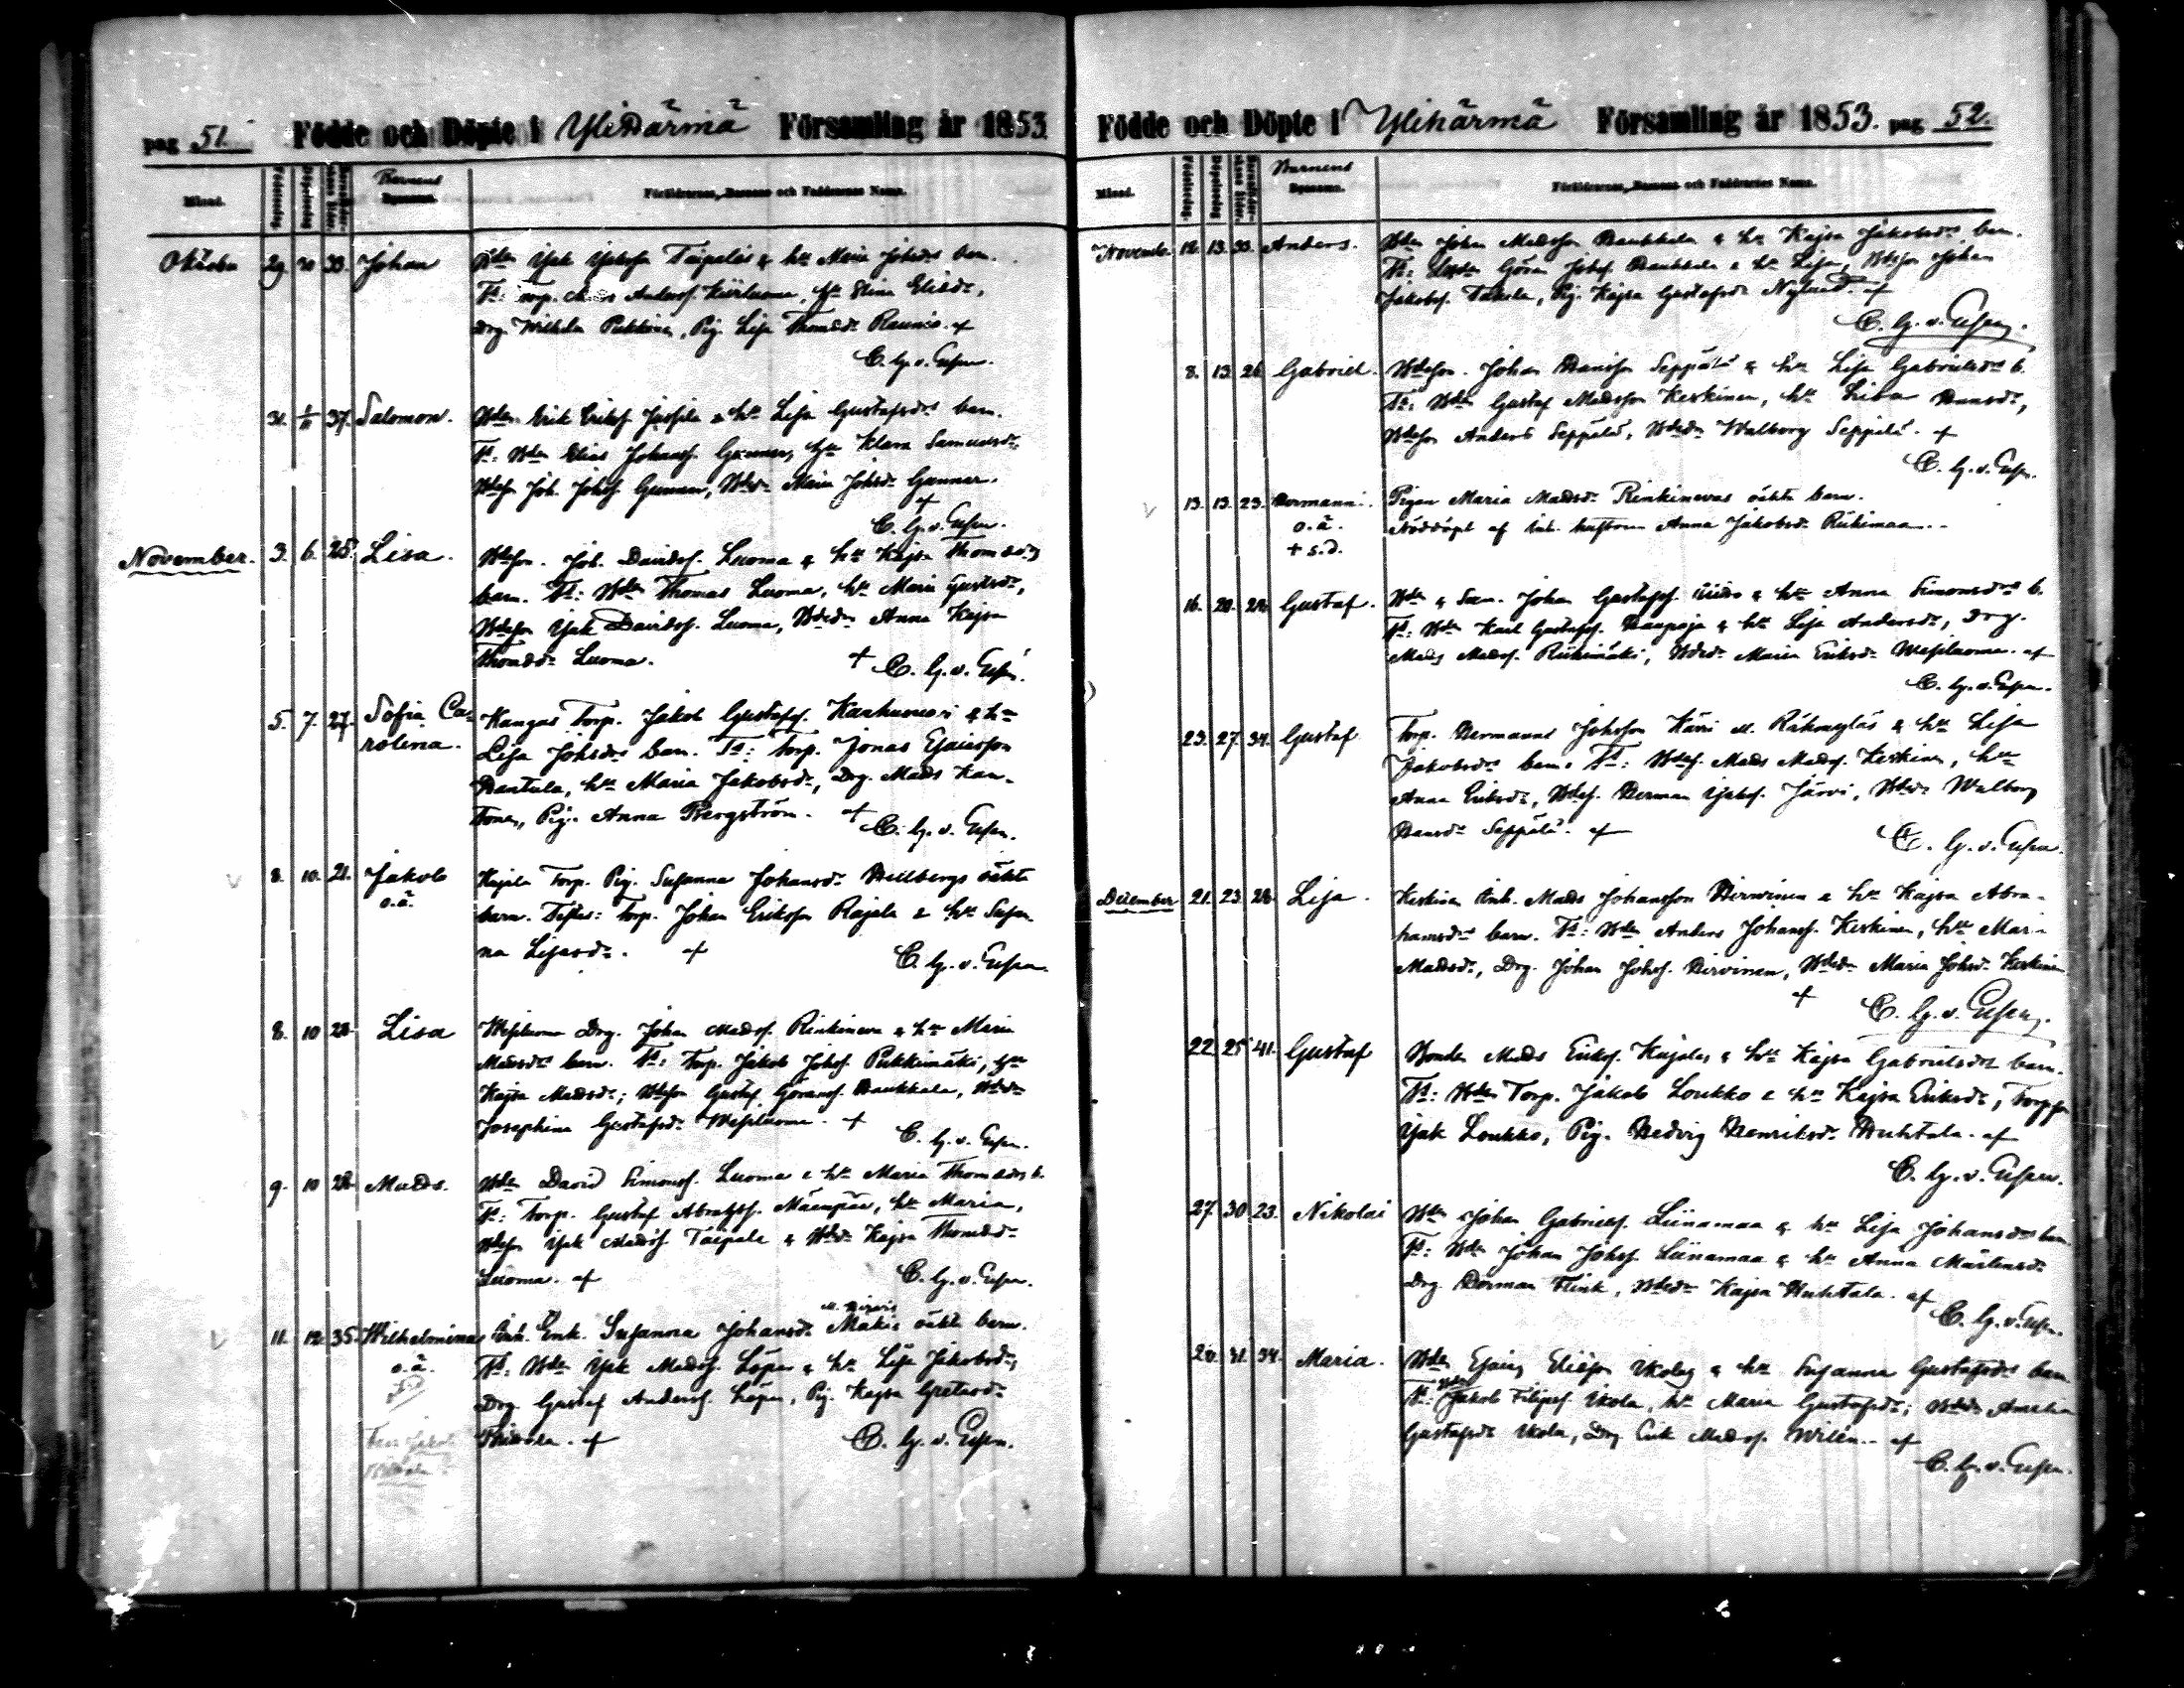 pag 51. Födde och Döpte i Ylihärmä Församling år 1853.
Månad. Födelsedag. Döpelsedag. Barnens Föräldrarnes, Barnens och Faddrarnes Namn.
Oktober 29. 30 33. Johan Bdn Isak Taipales & hu Maria Johsdrs barn.
Ts: Torp. Anderss. Kiirluoma, hu Elina Eliasdr,
Drg Wilhelm Pukkinen, Pig. Lisa Thomasdr Raunio. af
C. G. v. Essen.
31. 1/11 37. Salomon. Bdn Erik Erikss. Jussila & hu Lisa Gustafsdrs barn.
Ts: Bdn Elias Johanss. Gunnar, hu Klara Samuelsdr
Bdesn Joh. Johss. Gunnar, Bdedr Maria Johsdr Gunnar.
af
C. G. v. Essen.
November. 3. 6. 25. Lisa. Bdeson. Joh. Davidss. Luoma & hu Kajsa Thomasdrs
barn. Ts: Bdn Thomas Luoma, hu Maria Gustsdr,
Bdeson Isak Davidss. Luoma, Bdedr Anna Kajsa
Thomasdr Luoma. af C. G. v. Essen.
5. 7. 27. Sofia Ca- Kangas Torp. Jakob Gustafss. Karhuvuori & hu
rolina. Lisa Johsdrs barn. Ts: Torp. Jonas Esaiasson
Hantula, hu Maria Jakobsdr, Drg. Mads Kan-
tonen, Pig. Anna Bergström. af C. G. v. Essen.
8. 10. 21. Jakob Rajala Torp. Pig. Susanna Johansdr Hellbergs oäkta
o.ä. barn. Testes: Torp. Johan Eriksson Rajala & hu Susan-
na Lisasdr. af C. G. v. Essen.
8. 10 28. Lisa Wesiluoma Drg. Johan Madss. Rinkineva & hu Maria
Madsdrs barn. Ts: Torp. Jakob Johss. Pukkimäki, hu
Kajsa Madsdr; Bdeson Gustaf Göranss. Haukkala, Bdedr
Josephina Gustafsdr Wesiluoma. af C. G. v. Essen.
9. 10 28. Mads. Bdn David Simonss. Luoma & hu Maria Thomasdrs b.
Ts: Torp. Gustaf Abrahss. Mäenpää, hu Maria,
Bdeson Isak Madss. Taipale & Bdedr Kajsa Thomasdr
Luoma. af C. G. v. Essen.
11. 12. 35. Wilhelmina Enk. Susanna Johansdr Mäkis oäkta barn.
o.ä. Ts: Bdn Isak Madss. Löpas & hu Lisa Jakobsdr,
Drg Gustaf Anderss. Löpas, Pig. Kajsa Gretasdr
af C. G. v. Essen.
Födde och Döpte i Ylihärmä Församling år 1853. pag 52.
Månad. Födelsedag. Döpelsedag. Barnens Föräldrarnes, Barnens och Faddrarnes Namn.
November 12. 13. 33. Anders. Bdn Johan Madsson Haukkala & hu Kajsa Jakobsdrs barn.
Ts: Göran Johss. Haukkala & hu Lisa, Bdeson Johan
Jakobss. Takala, Pig. Kajsa Gustafsdr Nylund. af
C. G. v. Essen.
8. 13. 26. Gabriel. Bdeson. Johan Hansson Seppälä & hu Lisa Gabrielsdrs b.
Ts: Bdn Gustaf Madsson Keskinen, hu Lisa Hansdr,
Bdeson Anders Seppälä, Bdedr Walborg Seppälä. af
C. G. v. Essen.
13. 13. 23. Hermanni. Pigan Maria Madsdr Rinkinevas oäkta barn.
o.ä. Nöddöpt af Inh. hustrun Anna Jakobsdr Riihimaa.
+ s.d.
16. 20. 28. Gustaf. Bdn & Johan Gustafss. & hu Anna Simonsdrs b.
Ts: Bdn Karl Gustafss. Haapoja & hu Lisa Andersdr, Drg.
Mads Madss. Riihimäki, Bdedr Maria Eriksdr Wesiluoma. af
C. G. v. Essen.
23. 27. 34. Gustaf Torp. Hermanni Johsson & hu Lisa
Jakobsdrs barn. Ts: Bdes. Mads Madss. Keskinen, hu
Anna Eriksdr, Bdes. Herman Isakss. Järvi, Bdedr Walborg
Hansdr Seppälä. af C. G. v. Essen.
December 21. 23. 28. Lisa. Keskinen Inh. Mads Johansson Hirvinen & hu Kajsa Abra-
hamsdrs barn. Ts: Bdn Anders Johanss. Keskinen, hu Maria
Madsdr, Drg. Johan Johss. Hirvinen, Bdedr Maria Johsdr Keskinen
af C. G. v. Essen.
22. 25. 41. Gustaf Bonden Mads Erikss. Rajalas & hu Kajsa Gabrielsdrs barn.
Ts: Torp. Jakob Loukko & hu Kajsa Eriksdr, Torpson
Isak Loukko, Pig. Hedvig Henriksdr Huhtala. af
C. G. v. Essen.
27. 30. 23. Nikolai Bdn Johan Gabrielss. Liinamaa & hu Lisa Johansdrs barn
Ts: Bdn Johan Johss. Liinamaa & hu Anna Mårtensdr
Drg Herman Flink, Bdedr Kajsa Huhtala. af
C. G. v. Essen.
28. 31. 34. Maria. Bdn Esaias Eliasson Ikolas & hu Susanna Gustafsdrs barn
Ts: Jakob Filipss. Ikola, hu Maria Gustafsdr; Bdedr Amalia
Gustafsdr Ikola, Drg Erik Madss. Wilén. af
C. G. v. Essen.